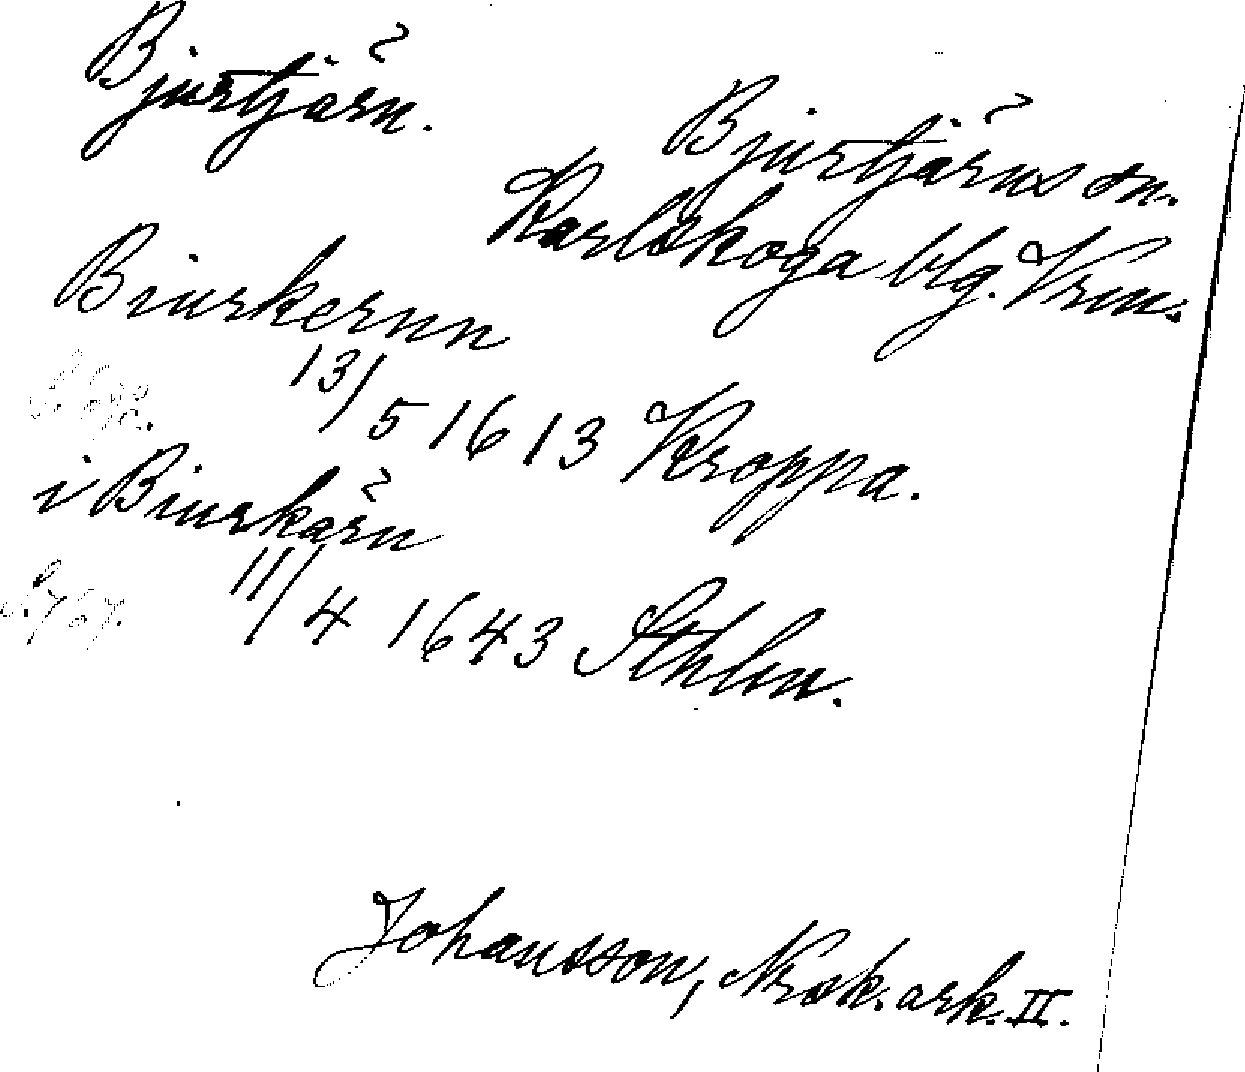 Bjurtjärn.
Bjurtjärns sn.
Karlskoga blg. Vrm.
Biurkernn
13/5 1613 Kroppa.
i Biurkärn
11/4 1643 Sthlm.
Johansson, Nrsk. ark. II.